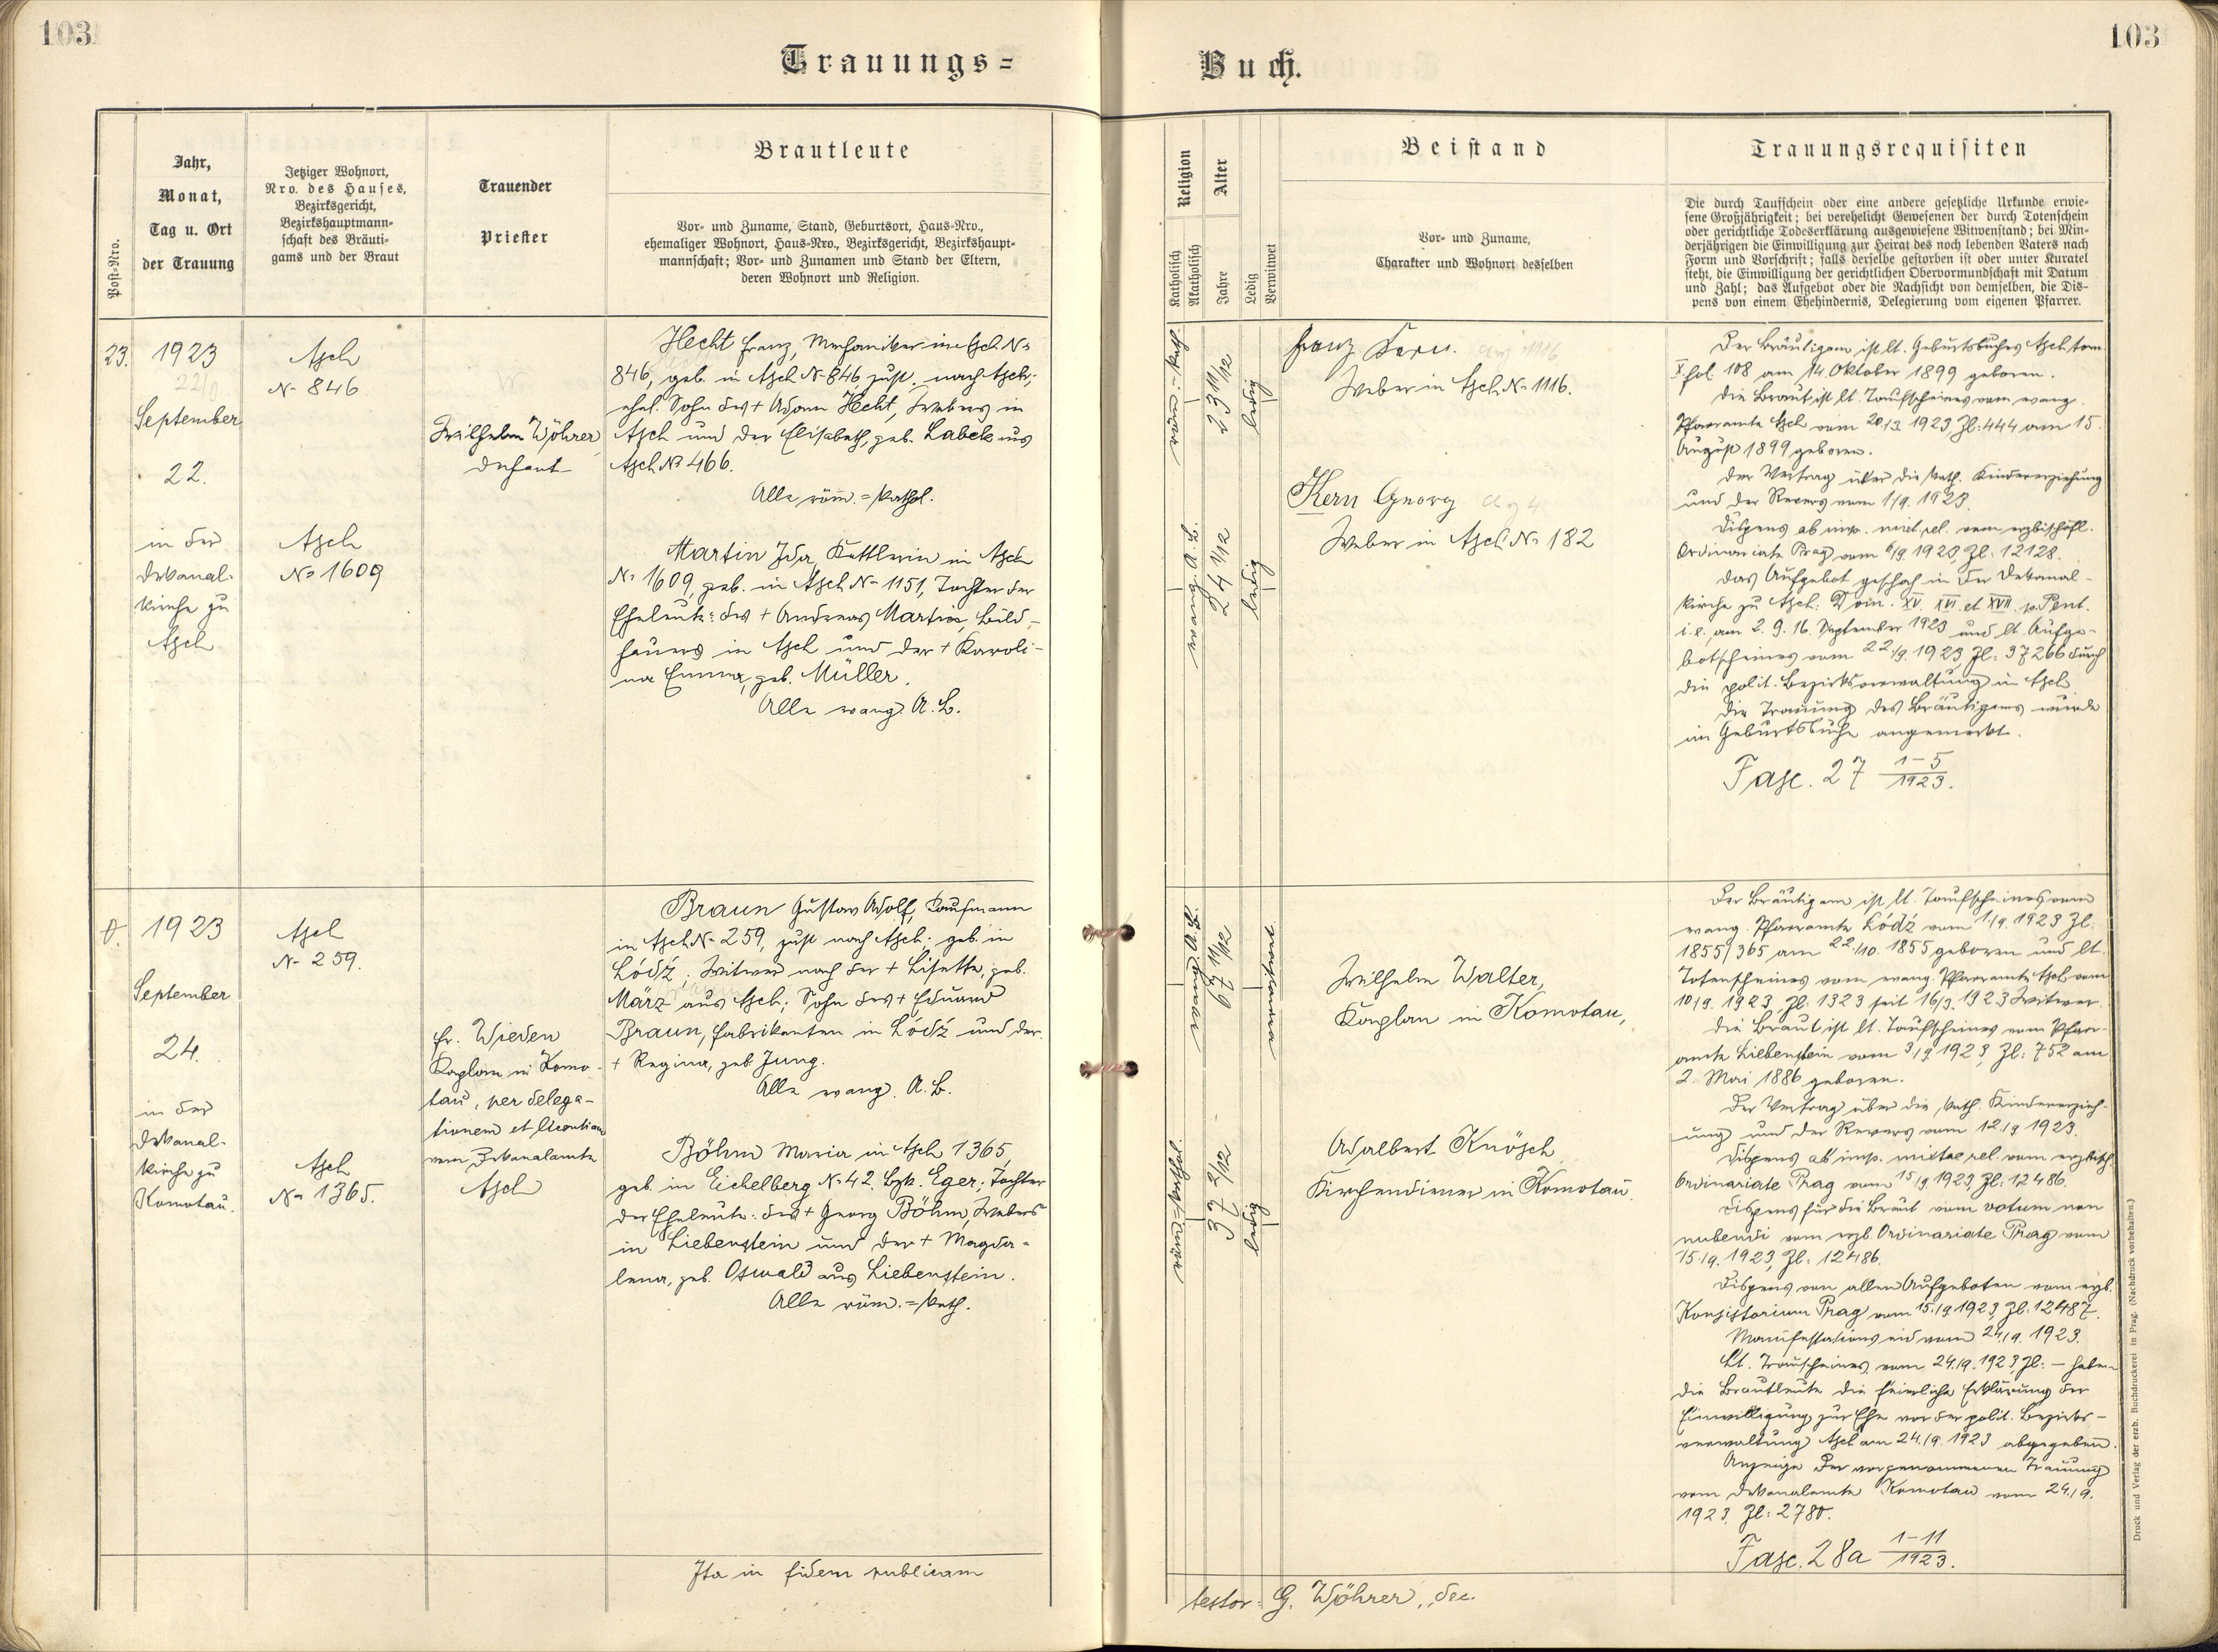 103
Trauungs=
Post-Nro.
Jahr,
Monat,
Tag u. Ort
der Trauung
Jetziger Wohnort,
Nro. des Hauses,
Bezirksgericht,
Bezirkshauptmann-
schaft des Bräuti-
gams und der Braut
Trauender
Priester
Brautleute
Vor- und Zuname, Stand, Geburtsort, Haus-Nro.,
ehemaliger Wohnort, Haus-Nro., Bezirksgericht, Bezirkshaupt-
mannschaft; Vor- und Zunamen und Stand der Eltern,
deren Wohnort und Religion.
23.
1923
22/9
September
22.
in der
Dekanal-
kirche zu
Asch
Asch
No 846
Asch
No 1609
Wilhelm Wöhrer
Dechant
Hecht Franz, Mechaniker in Asch No
846, geb. in Asch No 846, zust. nach Asch;
ehel. Sohn des + Adam Hecht, Webers in
Asch und der Elisabeth, geb. Labek aus
Asch No 466.
Alle röm.=kathol.
Martin Ida, Kettlerin in Asch
No 1609, geb. in Asch No 1151, Tochter der
Eheleute: des + Andreas Martin, Bild-
hauers in Asch und der + Karoli-
na Emma, geb. Müller.
Alle evang. A. B.
1923
September
24.
in der
Dekanal-
kirche zu
Komotau.
Asch
No 259.
Asch
No 1365.
Fr. Wieden
Kaplan in Komo-
tau, per delega-
tionem et licentiam
vom Dekanalamte
Asch
Braun Gustav Adolf, Kaufmann
in Asch No 259, zust. nach Asch; geb. in
Łódź. Witwer nach der + Lisette, geb.
März aus Asch; Sohn des + Eduard
Braun, Fabrikanten in Łódź und der
+ Regina, geb. Jung.
Alle evang. A. B.
Böhm Maria in Asch 1365,
geb. in Eichelberg No 42. Bzk. Eger; Tochter
der Eheleute: des + Georg Böhm, Webers
in Liebenstein und der + Magda-
lena, geb. Oswald aus Liebenstein.
Alle röm.=kath.
Ita in fidem publicam
103
Buch.
Religion
Katholisch
Akatholisch
Alter
Jahre
Ledig
Verwitwet
Beistand
Vor- und Zuname,
Charakter und Wohnort desselben
Trauungsrequisiten
Die durch Taufschein oder eine andere gesetzliche Urkunde erwie-
sene Großjährigkeit; bei verehelicht Gewesenen der durch Totenschein
oder gerichtliche Todeserklärung ausgewiesene Witwenstand; bei Min-
derjährigen die Einwilligung zur Heirat des noch lebenden Vaters nach
Form und Vorschrift; falls derselbe gestorben ist oder unter Kuratel
steht, die Einwilligung der gerichtlichen Obervormundschaft mit Datum
und Zahl; das Aufgebot oder die Nachsicht von demselben, die Dis-
pens von einem Ehehindernis, Delegierung vom eigenen Pfarrer.
röm.-kath.
23 11/12
ledig
Franz Kern.
Weber in Asch No 1116.
evang. A. B.
24 1/12
ledig
Kern Georg
Weber in Asch No 182
Der Bräutigam ist lt. Geburtsbuches Asch tom.
X fol. 108 am 14. Oktober 1899 geboren.
Die Braut ist lt. Taufscheines vom evang.
Pfarramte Asch vom 20/3. 1923, Zl: 444 am 15.
August 1899 geboren.
Der Vertrag über die kath. Kindererziehung
und der Revers vom 1/9. 1923.
Dispens ab imp. mixt. rel. vom erzbischöfl.
Ordinariate Prag vom 6/9 1923, Zl: 12128.
Das Aufgebot geschah in der Dekanal-
kirche zu Asch: Dom. XV. XVI. et XVII. p. Pent.
i. e. am 2. 9. 16. September 1923 und lt. Aufge-
botscheines vom 22/9. 1923 Zl: 37266 durch
die polit. Bezirksverwaltung in Asch
Die Trauung des Bräutigams wurde
im Geburtsbuche angemerkt.
Fasc. 27 1-5/1923.
evang. A. B.
67 11/12
verwitwet
Wilhelm Walter,
Kaplan in Komotau,
röm.=kathol.
37 2/12
ledig
Adalbert Knösch
Kirchendiener in Komotau.
Der Bräutigam ist lt. Taufscheines vom
evang. Pfarramte Łódź vom 1/9. 1923 Zl:
1855/365 am 22./10. 1855 geboren und lt.
Totenscheines vom evang. Pfarramte Asch vom
10/9. 1923, Zl: 1323 seit 16/3. 1923 Witwer.
Die Braut ist lt. Taufscheines vom Pfarr-
amte Liebenstein vom 3/9 1923, Zl: 752 am
2. Mai 1886 geboren.
Der Vertrag über die kath. Kindererzieh-
ung und der Revers vom 12/9 1923.
Dispens ab imp. mixtae rel. vom erzbisch.
Ordinariate Prag vom 15/9. 1923, Zl: 12486.
Dispens für die Braut vom votum non
nubendi vom erzb. Ordinariate Prag vom
15/9. 1923, Zl: 12486.
Dispens von allen Aufgeboten vom erzb.
Konsistorium Prag vom 15./9 1923, Zl: 12487.
Manifestationseid vom 24/9. 1923.
Lt. Trauscheines vom 24./9. 1923, Zl: — haben
die Brautleute die feierliche Erklärung der
Einwilligung zur Ehe vor der polit. Bezirks-
verwaltung Asch am 24./9. 1923 abgegeben.
Anzeige der vorgenommenen Trauung
vom Dekanalamte Komotau vom 24./9.
1923, Zl: 2780.
Fasc. 28a 1-11/1923.
testor: G. Wöhrer, dec.
Druck und Verlag der erzb. Buchdruckerei in Prag. (Nachdruck vorbehalten.)